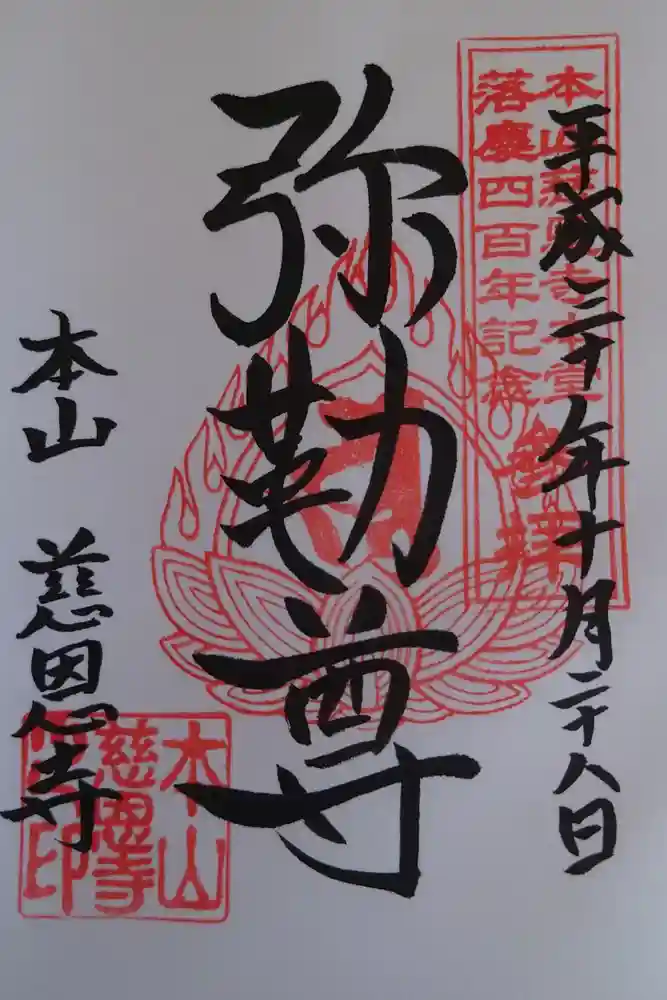 平成三十年十月二十八日
本山慈恩寺本堂
落慶四百年記念
参拝
弥勒尊
本山 慈恩寺
本山
慈恩寺
印